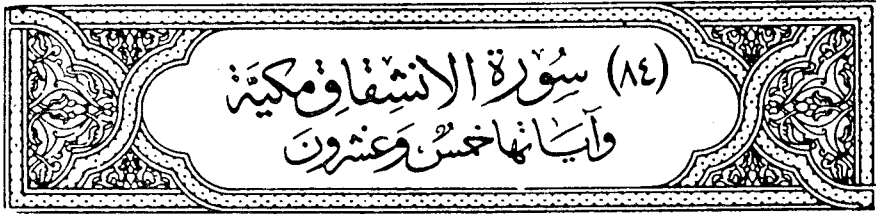 (٨٤) سُورَةُ الانْشِقَاقِ مَكِيَّة
وَآيَاتُهَا خَمْسٌ وَعِشْرُونَ